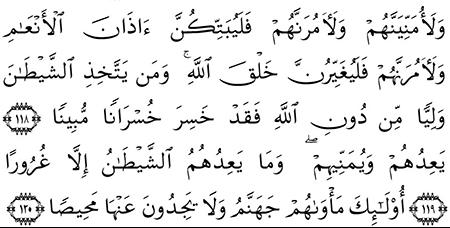 وَلَأُمَنِّيَنَّهُمْ وَلَأٓمُرَنَّهُمْ فَلَيُبَتِّكُنَّ ءَاذَانَ ٱلْأَنْعَٰمِ
وَلَأٓمُرَنَّهُمْ فَلَيُغَيِّرُنَّ خَلْقَ ٱللَّهِ ۚ وَمَن يَتَّخِذِ ٱلشَّيْطَٰنَ
وَلِيًّا مِّن دُونِ ٱللَّهِ فَقَدْ خَسِرَ خُسْرَانًا مُّبِينًا ﴿١١٨﴾
يَعِدُهُمْ وَيُمَنِّيهِمْ ۖ وَمَا يَعِدُهُمُ ٱلشَّيْطَٰنُ إِلَّا غُرُورًا
﴿١١٩﴾ أُو۟لَٰٓئِكَ مَأْوَىٰهُمْ جَهَنَّمُ وَلَا يَجِدُونَ عَنْهَا مَحِيصًا ﴿١٢٠﴾